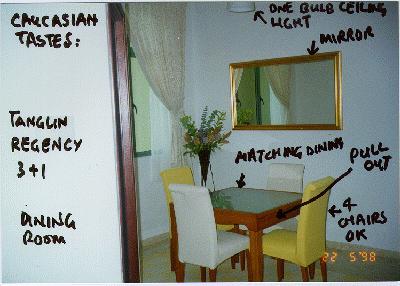 CAUCASIAN
TASTES:
TANGLIN
REGENCY
3+1
DINING
ROOM
ONE BULB CEILING
LIGHT
MIRROR
MATCHING DINING
PULL
OUT
4
CHAIRS
OK
22 5'98